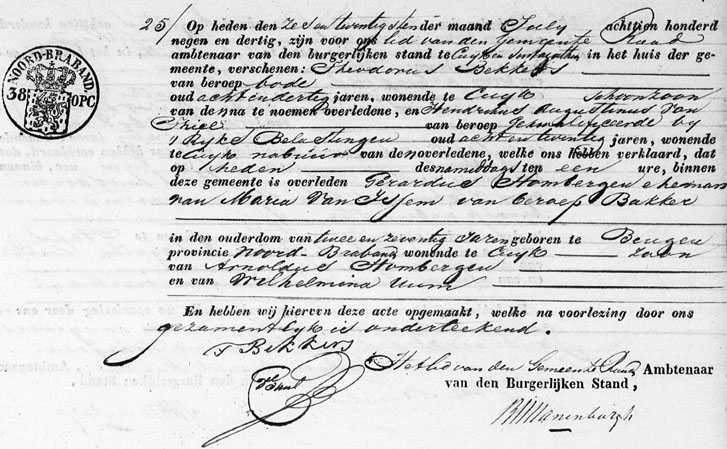 NOORD-BRABAND
38 OPC
25/ Op heden den zes en twintigsten der maand July achttien honderd
negen en dertig, zijn voor ons lid van den Gemeente Raad
ambtenaar van den burgerlijken stand te Cuyk en St Agatha in het huis der ge-
meente, verschenen: Theodorus Bekkers
van beroep bode
oud acht en dertig jaren, wonende te Cuyk schoonzoon
van den na te noemen overledene, en Hendrikus Augustinus van
van beroep by
's Ryks Belastingen oud acht en twintig jaren, wonende
te Cuyk nabuur van den overledene, welke ons hebben verklaard, dat
op heden des namiddags ten een ure, binnen
deze gemeente is overleden Gerardus Hombergen eheman
van Maria van van beroep Bakker
in den ouderdom van twee en zeventig Jaren geboren te Beugen
provincie Noord-Braband wonende te Cuyk zoon
van Arnoldus Hombergen
en van Wilhelmina
En hebben wij hiervan deze acte opgemaakt, welke na voorlezing door ons
gezamentlyk is onderteekend.
T Bekkers
Het lid van den Gemeente Raad Ambtenaar
van den Burgerlijken Stand,